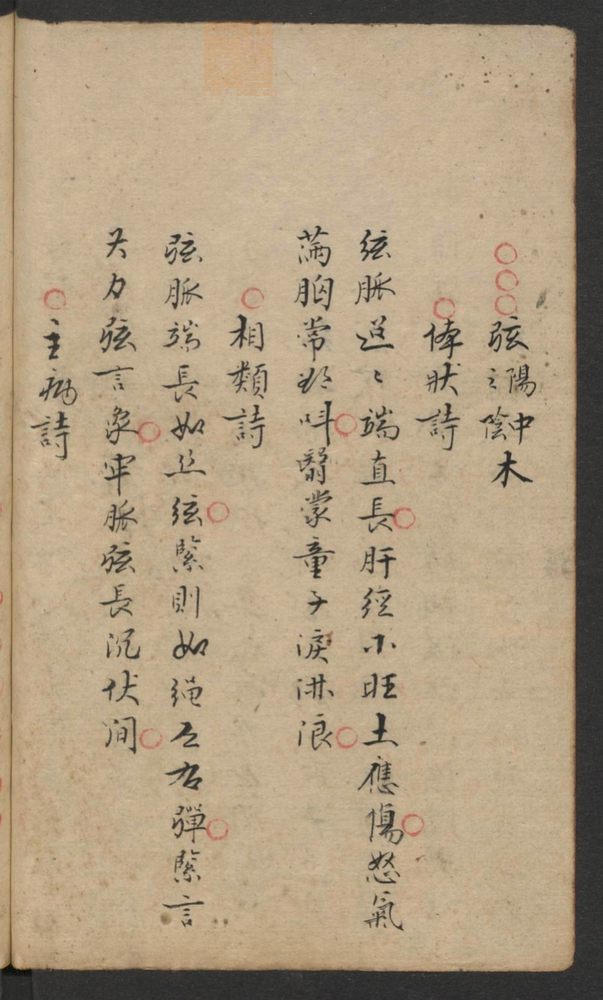 弦陽中之陰木
体狀詩
弦脈迢〻端直長肝經木旺土應傷怒氣
滿胸常欲叫翳蒙童子淚淋浪
相類詩
弦脈端長如𢇁弦緊則如繩左右彈緊言
大力弦言象牢脈弦長沉伏间
主病詩